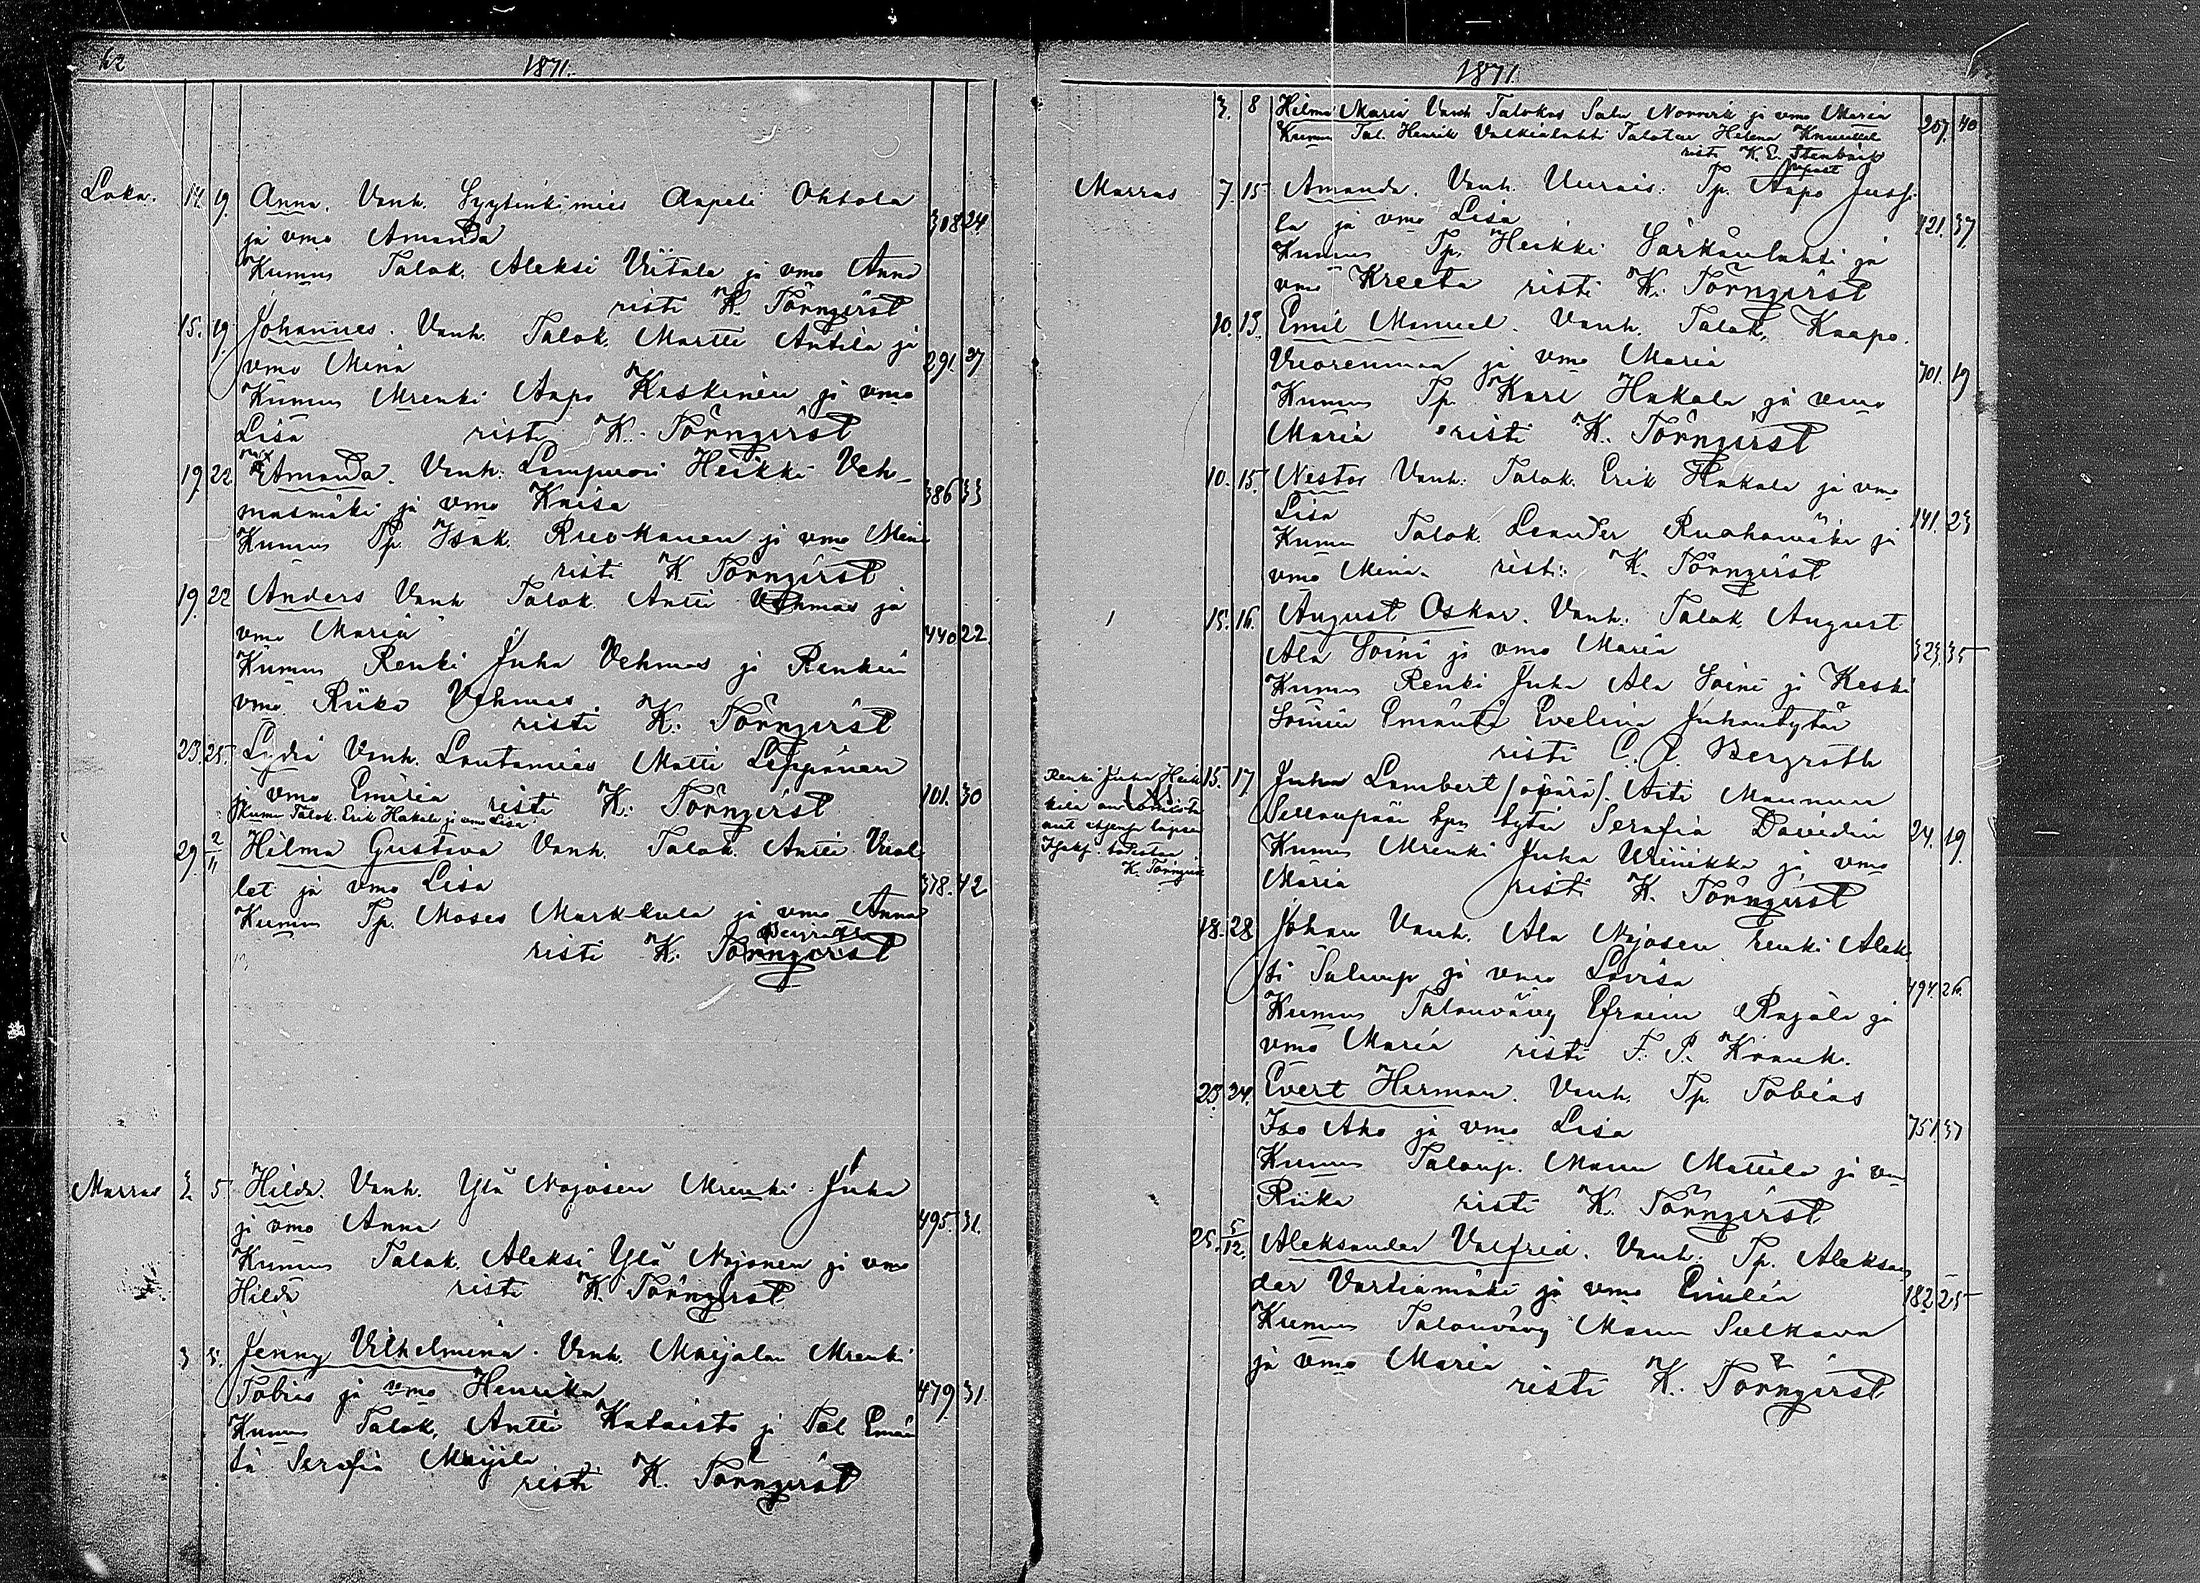 62
1871.
Loka. 14. 19. Anna. Vanh. Syytinkimies Aapeli Ohtola
ja vmo Amanda 308 24
Kumm Talok. Aleksi Viitala ja vmo Anna
risti K. Törnqvist
15. 19. Johannes. Vanh. Talok. Martti Antila ja
vmo Mina 291. 27
Kumm Mrenki Aapo Keskinen ja vmo
Lisa risti K. Törnqvist
19. 22 Amanda. Vanh. Lampuoti Heikki Veh-
masmäki ja vmo Kaisa 386 33
Kumm Tp. Isak. Ruokanen ja vmo Mina
risti K. Törnqvist
19. 22 Anders Vanh Talok. Antti Vehmas ja
vmo Maria 440 22
Kumm Renki Juha Vehmas ja Renkin
vmo Riika Vehmas
risti K. Törnqvist
23. 25. Lydia Vanh. Lautamies Matti Leppänen
ja vmo Emilia risti K. Törnqvist 101. 30
Kumm Talok. Erik Hakala ja vmo Lisa
29. 2/11 Hilma Gustava Vanh. Talok. Antti
let ja vmo Lisa 378. 42
Kumm Tp. Moses Markkula ja vmo Anna
Bergroth
risti K. Törnqvist
Marras 3. 5 Hilda. Vanh. Ylä Nojosen Mrenki Juha
ja vmo Anna 495. 31.
Kumm Talok. Aleksi Ylä Nojonen ja vmo
Hilda risti K. Törnqvist
3 5. Jenny Vilhelmina. Vanh. Maijalan Mrenki
Tobias ja vmo Henrika 479. 31.
Kumm Talok. Antti Kataisto ja Tal. Emän
tä Serafia Maijala
risti K. Törnqvist
1871
3. 8 Hilma Maria Vanh Talokas Salu Norrvik ja vmo Maria 207. 40
Kumm Tal. Henrik Valkialahti Talotar Helena
risti K. E. Stenbäck
Marras 7. 15 Amanda. Vanh. Uurais. Tp. Aapo Jussi
la ja vmo Lisa 421. 37
Kumm Tp. Heikki Särkänlahti ja
vmo Kreeta risti K. Törnqvist
10. 13. Emil Manuel. Vanh. Talok. Kaapo
Vuorenmaa ja vmo Maria 701. 19
Kumm Tp. Karl Hakala ja vmo
Maria risti K. Törnqvist
10. 15. Nestor Vanh. Talok. Erik Hakala ja vmo
Lisa 141. 23
Kumm Talok. Leander Ruohomäki ja
vmo Mina. risti K. Törnqvist
1 15. 16. August Oskar. Vanh. Talok. August
Ala Soini ja vmo Maria 323. 35
Kumm Renki Juha Ala Soini ja Keski
Soinin Emäntä Evelina Juhantytär
risti C. A. Bergroth
Renki Juha Heik
kilä
lapsen
K. Törnqvist
15. 17 Juha Lambert (äpärä). Äiti Maunun
Sillanpään Tpn tytär Serafia Davidin 24. 19.
Kumm Mrenki Juha Uiinikka ja vmo
Maria risti K. Törnqvist
18. 28 Johan Vanh. Ala Nojosen renki Alek
si Salunp ja vmo Lovisa 494. 26.
Kumm Talonvävy Efraim Rajala ja
vmo Maria risti F. P. Krank.
23. 24. Evert Herman. Vanh. Tp. Tobias
Iso Aho ja vmo Lisa 751. 37
Kumm Talonp. Manu Mattila ja vmo
Riika risti K. Törnqvist
25. 5/12. Aleksander Valfrid. Vanh. Tp. Aleksan
der Vartiamäki ja vmo Emilia 182 25
Kumm Talonvävy Manu Sulkava
ja vmo Maria
risti K. Törnqvist